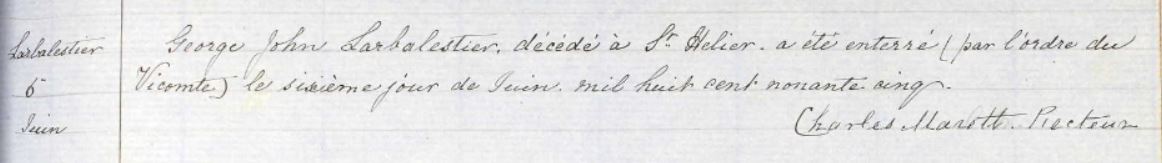 Larbalestier
George John Larbalestier. décédé à St. Helier. a été enterré (par l'ordre du
6
Vicomte) le sixième jour de Juin. mil huit cent nonante cinq.
Juin
Charles Marett. Recteur